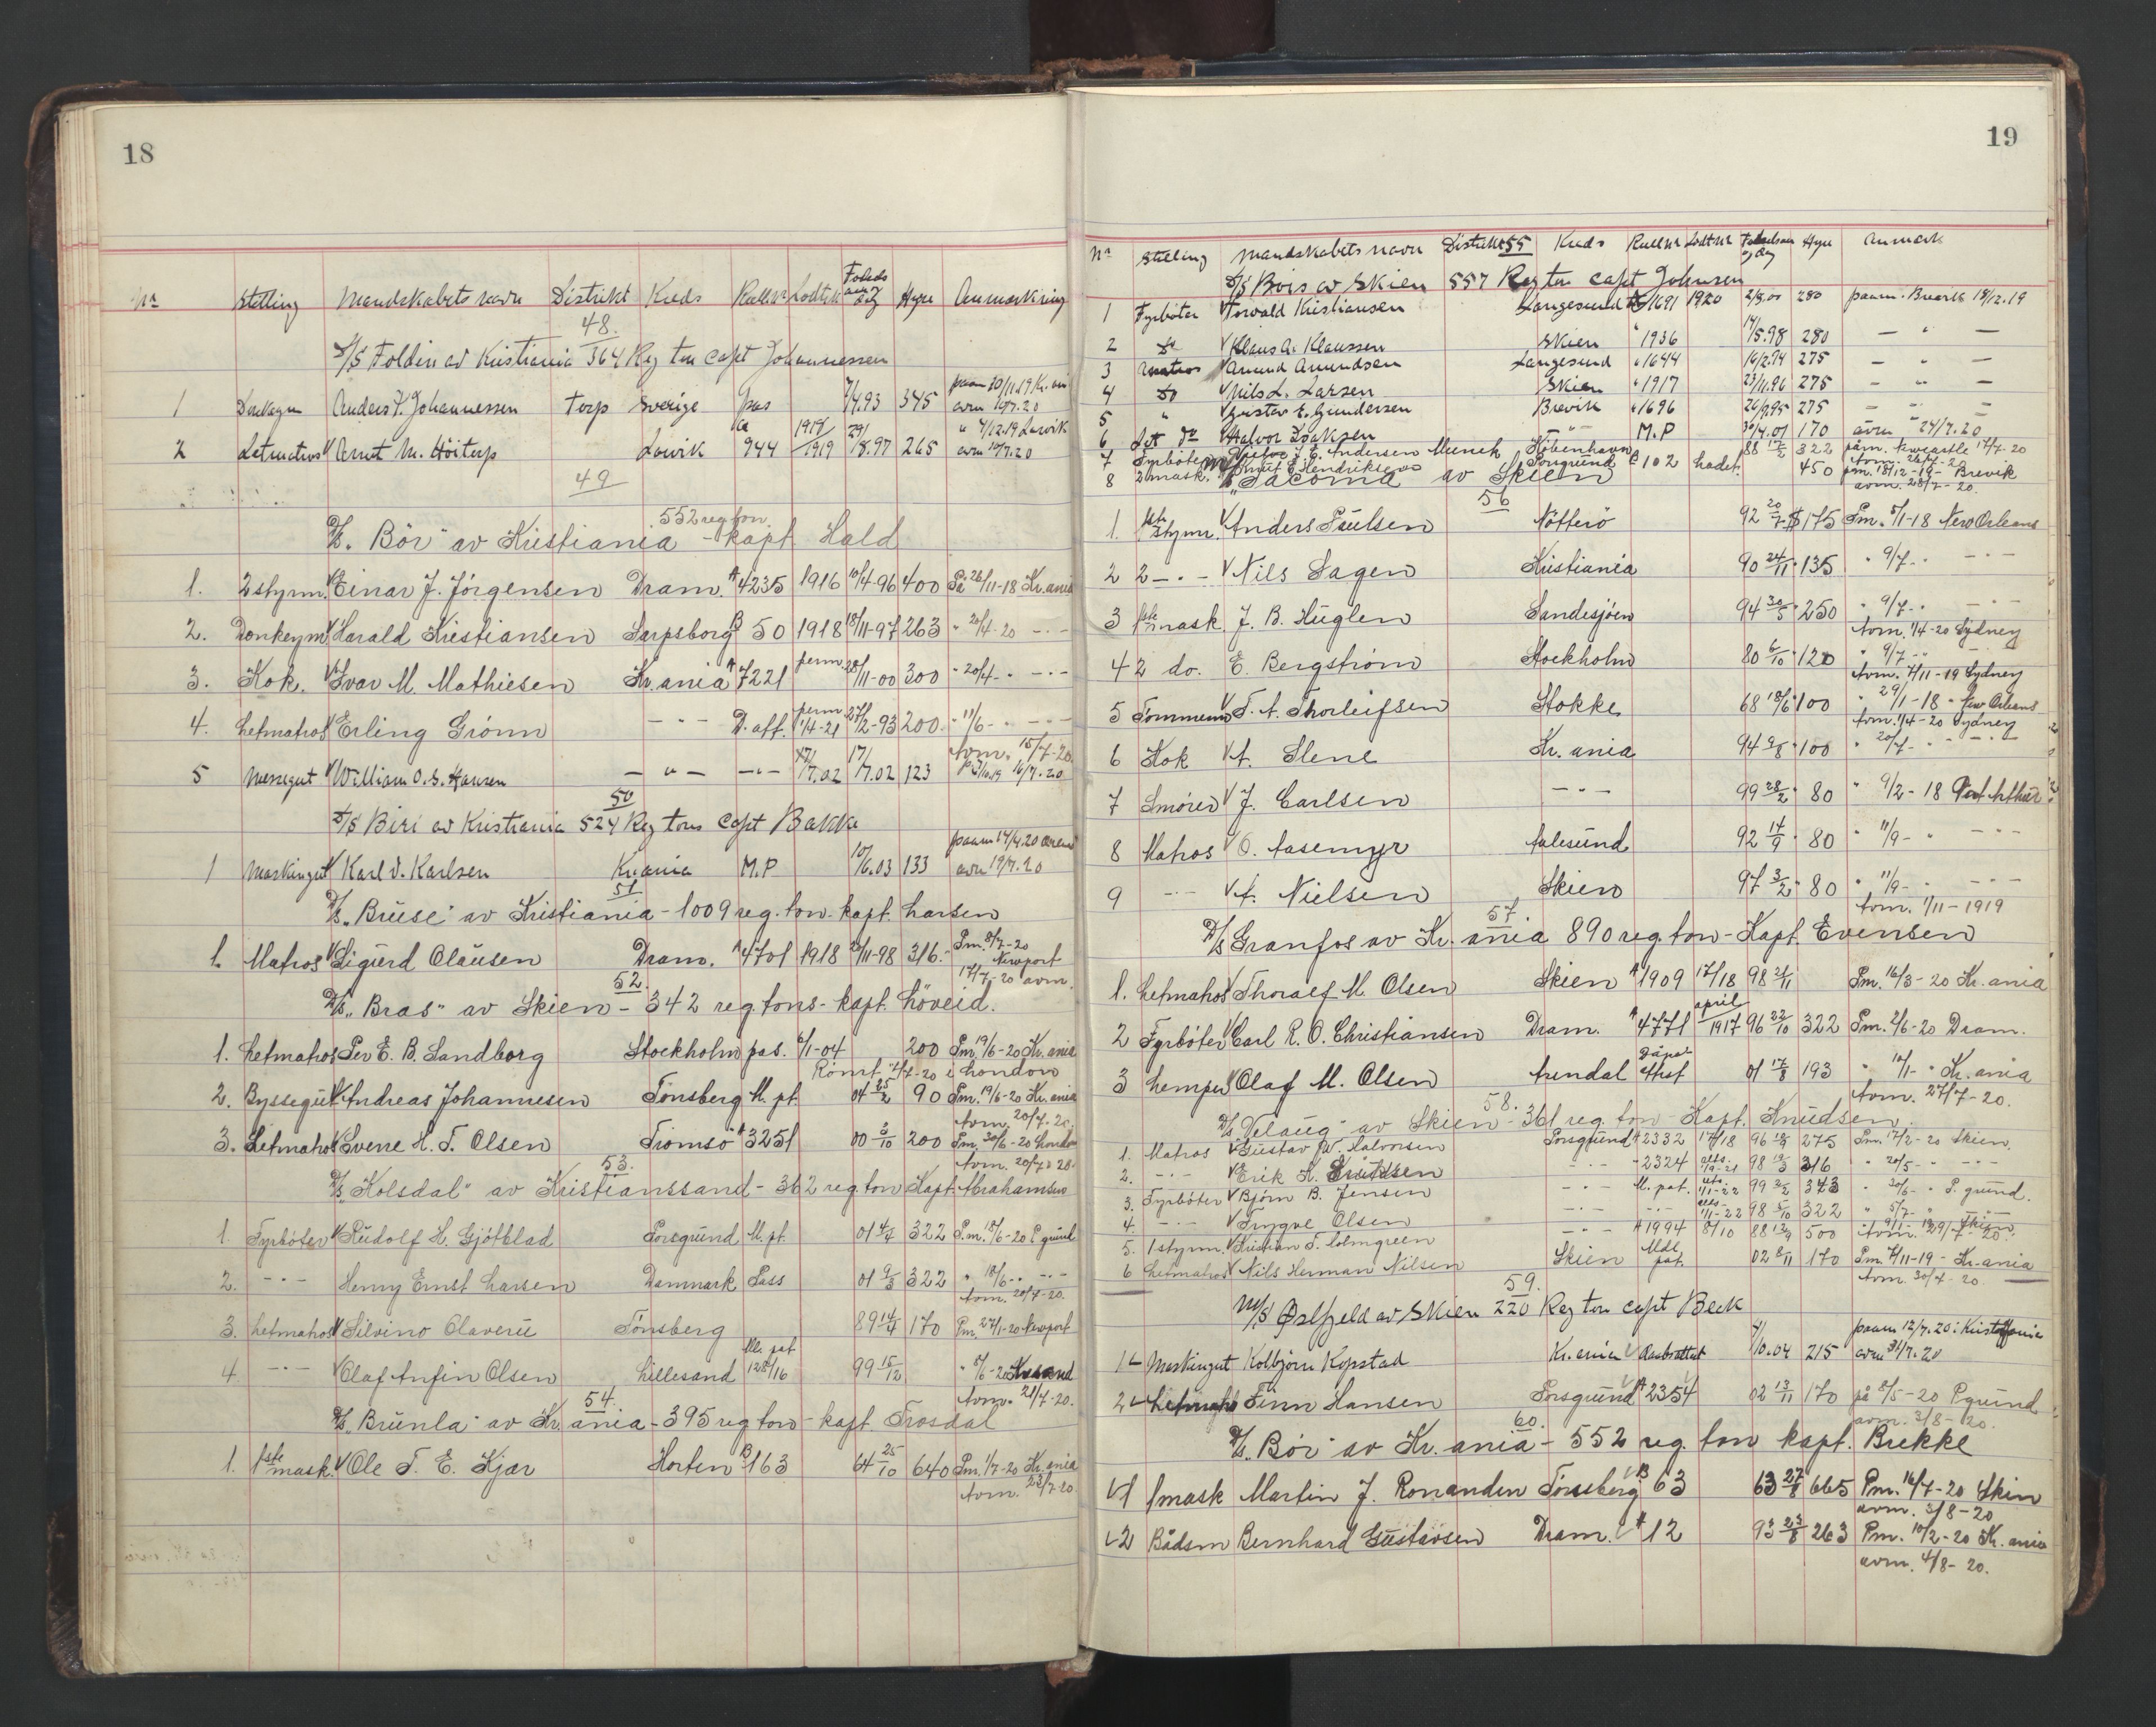 18
Nr Stilling Mandskabets navn Distrikt Kreds Rullnr Lodtnr Hyre Anmerkning
48.
S/S Foldin av Kristiania 364 Reg ton Capt Johannessen
1 Anders J. Johannessen Torp Sverige pas 7/4.93 345 paam 20/11.19 Kr.ania
avm 16/7.20
2 Letmatros Arnt M. Höitorp Larvik 944 1919 29/8.97 265 " 4/12.19 Larvik
avm 10/7.20
49
552 reg ton
D/S "Bör" av Kristiania - kapt. Hald
1. 2 styrm. Einar J. Jörgensen Dram. A 4235 1916 10/4-96 400 På 26/11-18 Kr.ania
2. Donkeym. Harald Kristiansen Sarpsborg B 50 1918 18/11-97 263 " 20/4-20 - " -
3. Kok. Ivar M. Mathiesen Kr.ania A 7221 perm 28/11-00 300 " 20/4 - " - " -
4. Letmatros Erling Grönn - " - D. aff. perm 1/4-21 27/2-93 200. " 11/6 - " - " -
Avm. 15/7-20.
5 Messegut William O. S. Hansen - " - - " - 17/7.02 17/7.02 123 16/7.20
50
S/S Biri av Kristiania 524 Reg tons Capt Bakke
1 Maskingut Karl V. Karlsen Kr.ania M.P 10/6.03 133 paam 14/4.20
avm 19/7.20
51
D/S "Bruse" av Kristiania - 1009 reg. ton - kapt. Larsen
1. Matros Sigurd Clausen Dram. A 4701 1918 28/11-98 316.- Pm. 8/7-20
Newport
17/7-20 avm.
52.
D/S "Bras" av Skien - 342 reg. tons - kapt. Höveid.
1. Letmatros Per E. B. Sandborg Stockholm pas. 6/1-04 200 Pm. 19/6-20 Kr.ania
Römt 4/7-20 i London
2. Byssegut Andreas Johannesen Tönsberg M. pt. 04 25/2 90 Pm. 19/6-20 Kr.ania
Avm. 20/7-20.
3. Letmatros Sverre H. T. Olsen Tromsö A 3251 00 3/10 200 Pm. 30/6-20 London
Avm. 20/7-20.
53.
D/S "Kolsdal" av Kristianssand - 362 reg. ton Kapt. Abrahamsen
1. Fyrböter Rudolf H. Gjötblad Porsgrund M. pt. 01 4/4 322 P.m. 18/6-20 P.grund
2. - " - Henry Ernst Larsen Danmark Pass 01 9/3 322 " 18/6 - " - " -
Avm. 20/7-20.
3. Letmatros Silvino Claveru Tönsberg 89 14/4 170 Pm. 27/1-20 Newport
4. - " - Olaf Anfin Olsen Lillesand Ml. pat 128/16 99 15/12 " 8/6-20
Avm. 21/7-20.
54.
D/S "Brunla" av Kr.ania - 395 reg ton - kapt. Trosdal
1. 1ste mask. Ole T. E. Kjær Horten B 163 64 25/10 640 Pm. 1/7-20 Kr.ania
Avm. 23/7-20.
19
Nr Stilling Mandskabets navn Distrikt 55 Kreds Rullnr Lodtnr Hyre Anmerk
S/S Bris av Skien 557 Reg ton Capt Johnsen
1 Fyrböter Torvald Kristiansen Langesund A 1691 1920 2/8.00 280 paam. Brevik 18/12.19
2 do Klaus A. Klaussen Skien " 1936 14/5.98 280 - " -
3 Matros Amund Amundsen Langesund " 1644 16/2.94 275 - " -
4 do Nils L. Larsen Skien " 1917 23/11.96 275 - " -
5 " Gustav E. Gundersen Brevik " 1696 26/9.95 275 - " -
6 Let do Halvor Isaksen - " - M.P 30/4.01 170 avm " 24/7.20
7 Fyrböter J. E. Andersen Munch Köbenhavn 88 17/2 322 påm. Newcastle 17/7-20
Avm. 26/7-20
8 2 mask. Knut E. Hendriksen Porsgrund C 102 Kadet. 450 pm. 18/12-19 - Brevik
avm. 28/7-20.
"Tacoma" av Skien
56
1. 1ste styrm. Anders Paulsen Nötterö 92 20/7 $ 175 Pm. 8/1-18 New Orleans
2 2 - " - Nils Sagen Kristiania 90 24/11 " 135 " 9/7 - " - " -
3 1ste mask. J. B. Huglen Sandesjöen 94 30/5 " 250 " 9/7 - " - " -
Avm. 1/4-20 Sydney
4 2 do. E. Bergström Stockholm 80 6/10 " 120 " 9/7 - "
Avm. 7/11-19 Sydney
5 Tömmerm. T. A. Thorleifsen Stokke 68 18/6 " 100 " 29/1-18 - New Orleans
Avm. 1/4-20 Sydney
6 Kok A. Slene Kr.ania 94 9/8 " 100 " 20/7 - " - " -
7 Smörer J. Carlsen - " - 99 28/2 " 80 " 9/2-18 Port Arthur
8 Matros O. Aasemyr Aalesund 92 14/9 " 80 " 11/9 - " - " -
9 - " - A. Nielsen Skien 97 3/2 " 80 " 11/9 - " - " -
Avm. 1/11-1919
57.
D/S Granfos av Kr.ania 890 reg. ton - Kapt. Evensen
1. Letmatros Thoralf M. Olsen Skien A 1909 17/18 98 21/11 Pm. 16/3-20 Kr.ania
2 Fyrböter Carl R. O. Christiansen Dram. A 4771 april 1917 96 22/10 322 Pm. 2/6-20 Dram.
3 Lemper Olaf M. Olsen Arendal 01 17/8 193 " 10/1 - " Kr.ania
Avm. 27/7-20.
58.
D/S "Velaug" av Skien - 361 reg. ton - Kapt. Knudsen.
1. Matros Gustav W. Halvorsen Porsgrund A 2332 17/18 96 18/9 275 Pm. 17/2-20 Skien.
2. - " - Erik K. Knudsen - " - - 2324 98 19/3 316 " 20/5 - " - " -
3. Fyrböter Björn B. Jensen - " - M. pat. 1/1-22 99 343 " 30/6 - " P.grund.
4. - " - Trygve Olsen - " - - " - 1/1-22 98 5/10 322 " 5/7 - "
5. 1 styrm. Kristian T. Holmgreen - " - A 1994 8/10 88 13/9 500 " 9/11-19 Skien
Avm. 29/7-20.
6 Letmatros Nils Herman Nilsen Skien Mdl. pat. 02 8/11 170 Pm. 7/11-19 - Kr.ania
Avm. 30/7-20.
59.
M/S Østfjeld av Skien 220 Reg ton Capt Beck
1 Maskingut Kolbjörn Kopstad Kr.ania 4/10.04 215 paam 12/7.20 i Kristiania
avm 31/7.20
2 Letmatros Finn Hansen Porsgrund A 2354 02 13/11 170 på 8/5-20 P.grund
avm. 3/8-20.
60.
D/S "Bör" av Kr.ania - 552 reg. ton kapt. Brekke
1 1 mask Martin J. Ronanden Tönsberg B 63 63 27/8 665 Pm. 16/7-20 Skien
avm. 3/8-20
2 Bådsm Bernhard Gustavsen Dram. A 12 93 23/8 263 Pm. 10/2-20 Kr.ania
avm. 4/8-20.